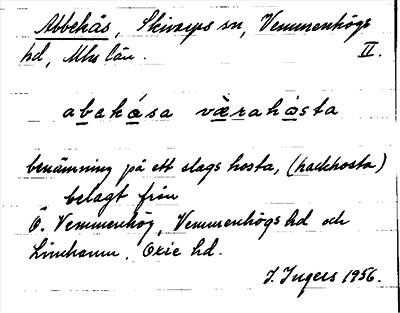 Abbekås, Skivarps sn, Vemmenhögs
hd, Mhs län. II.
abekåsa värahåsta
benämning på ett slags hosta, (hackhosta)
belagt från
Ö. Vemmenhög, Vemmenhögs hd och
Limhamn, Oxie hd.
I. Ingers 1956.